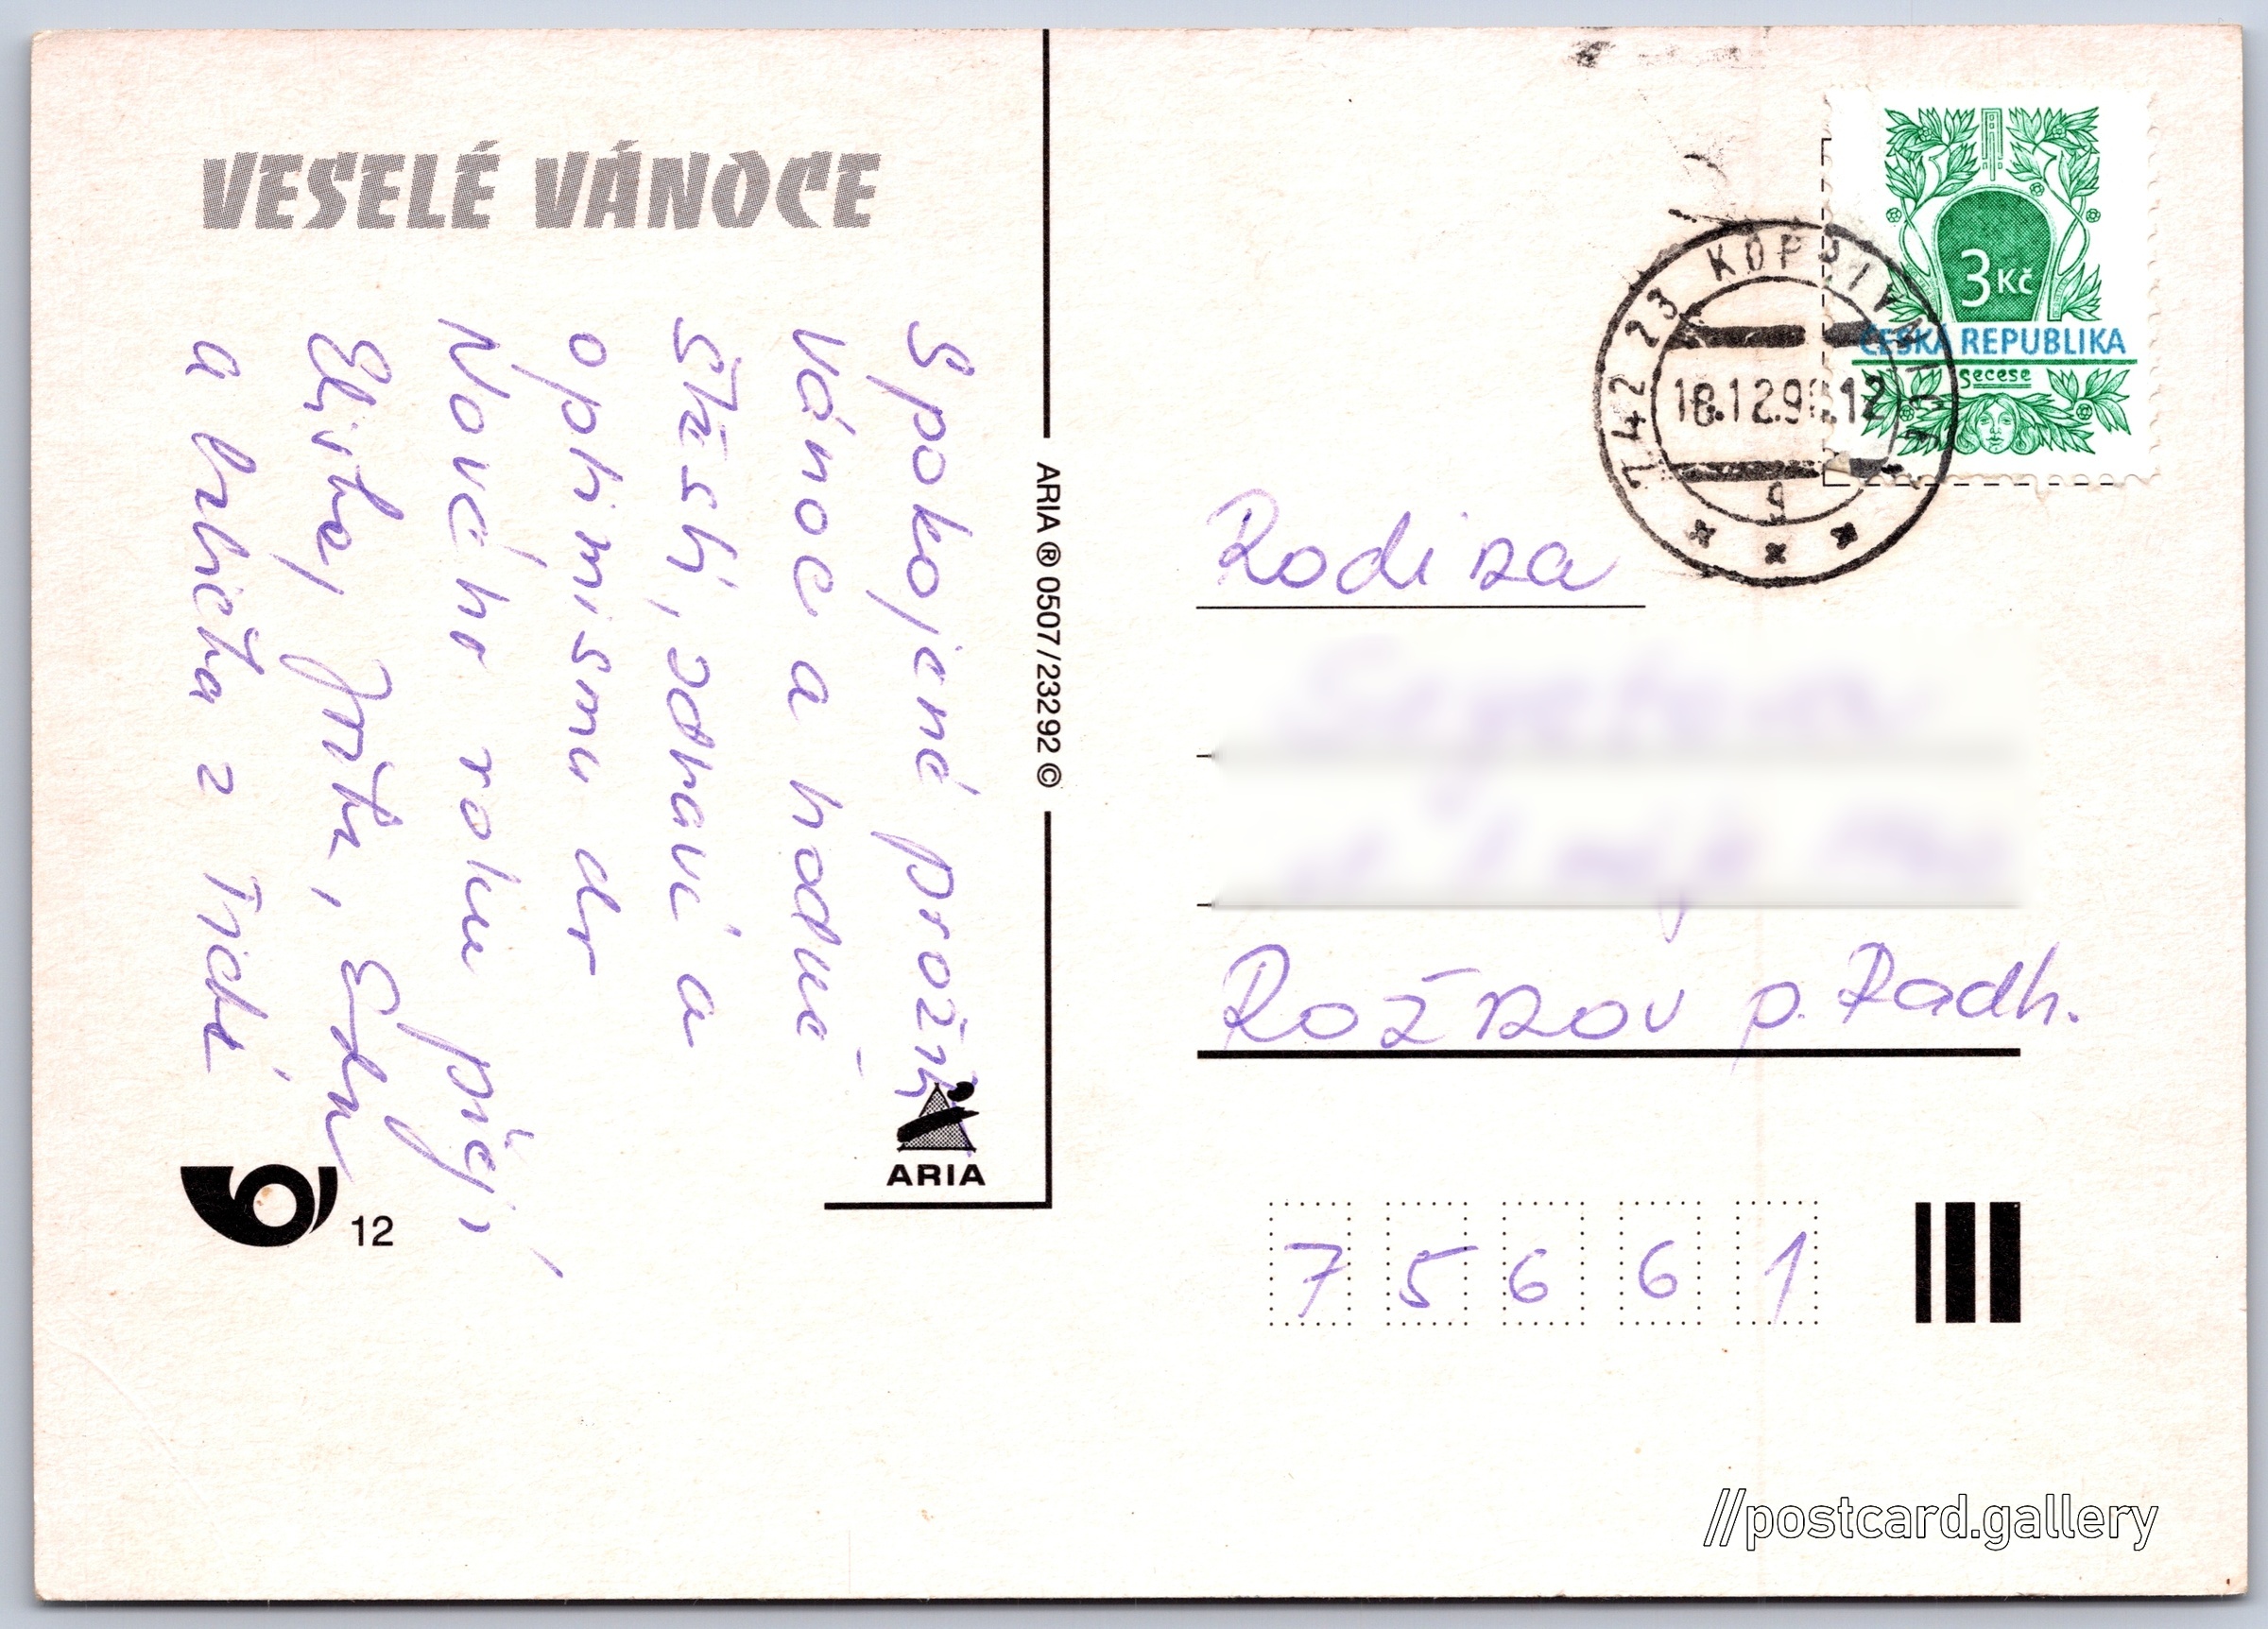 VESELÉ VÁNOCE
Spokojené prožití
Vánoc a hodně
štěstí, zdraví a
optimismu do
Nového roku přejí
Eliška, Jirka,
a babička z
ARIA ® 0507/23292 ©
ARIA
12
3 Kč
ČESKÁ REPUBLIKA
secese
742 23 KOPŘIVNICE
18.12.9 .12
g
Rodina
Rožnov p. Radh.
7 5 6 6 1
//postcard.gallery